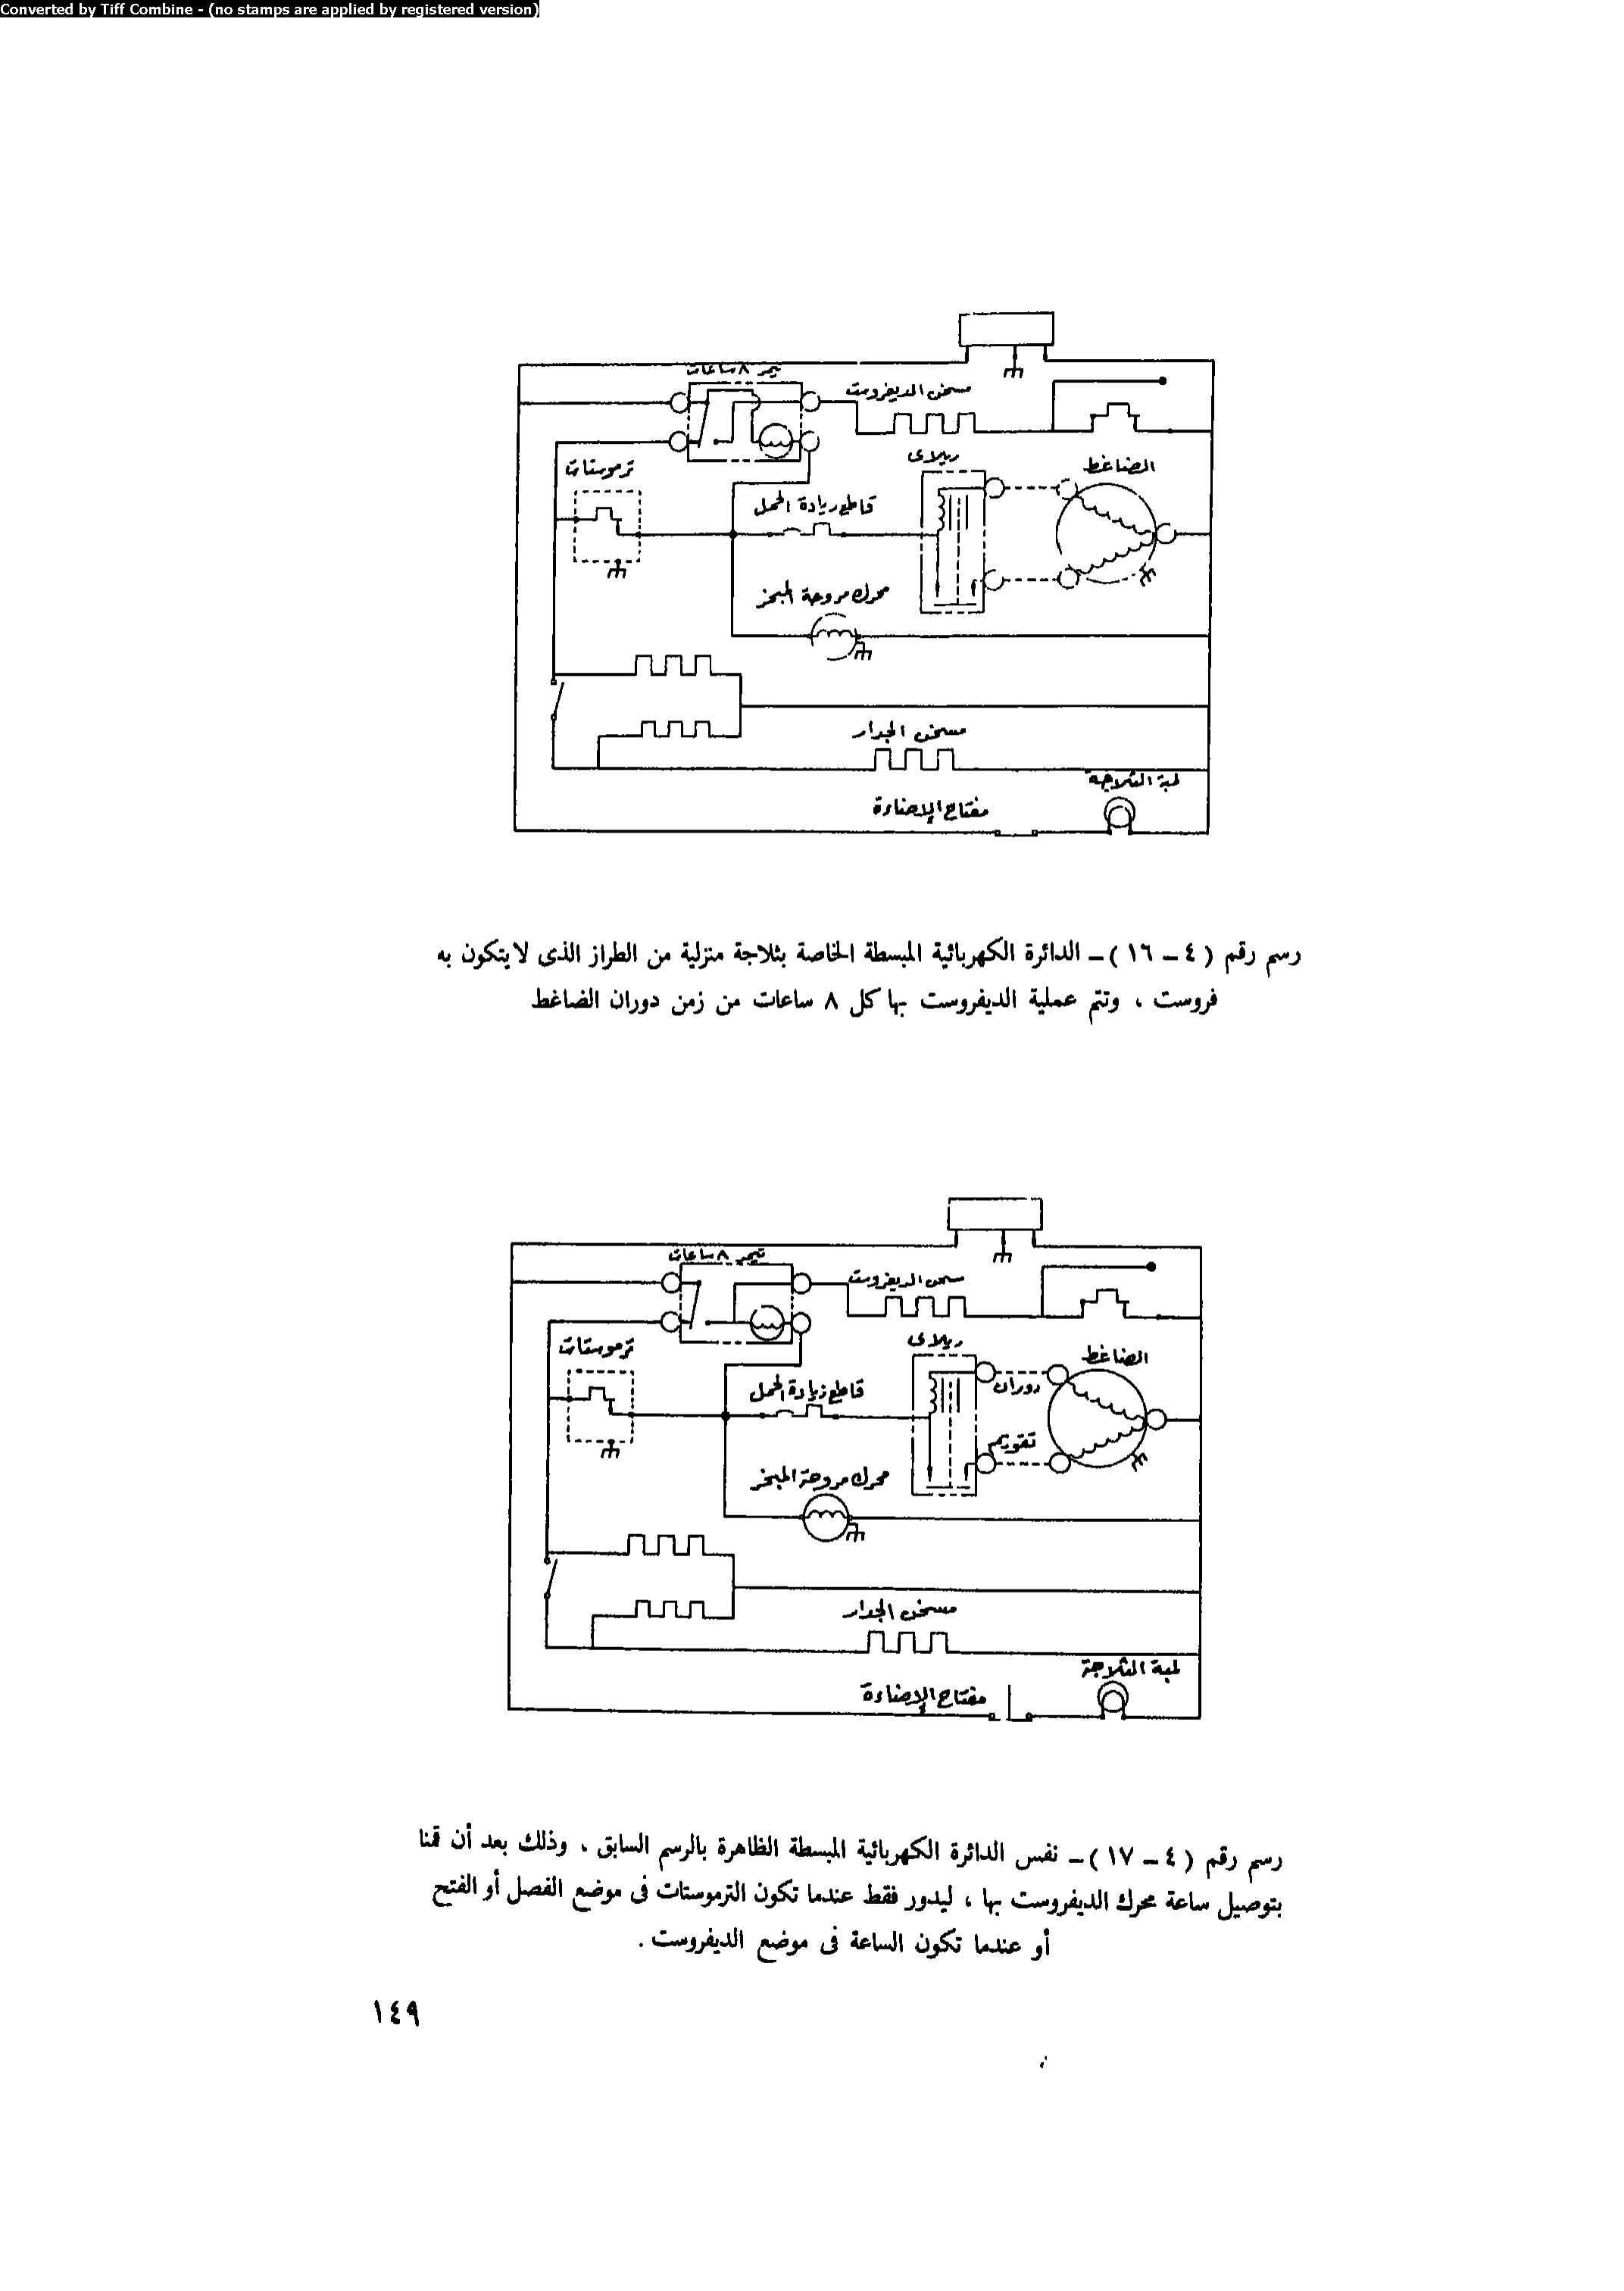 Converted by Tiff Combine - (no stamps are applied by registered version)
تيمر ٨ ساعات
مسخن الديفروست
ترموستات
ريلاى
الضاغط
قاطع زيادة الحمل
محرك مروحة المبخر
مسخن الجدار
لمبة الثلاجة
مفتاح الإضاءة
رسم رقم ( ٤ – ١٦ ) – الدائرة الكهربائية المبسطة الخاصة بثلاجة منزلية من الطراز الذى لا يتكون به
فروست ، وتتم عملية الديفروست بها كل ٨ ساعات من زمن دوران الضاغط
تيمر ٨ ساعات
مسخن الديفروست
ترموستات
ريلاى
الضاغط
دوران
قاطع زيادة الحمل
تقويم
محرك مروحة المبخر
مسخن الجدار
لمبة الثلاجة
مفتاح الإضاءة
رسم رقم ( ٤ – ١٧ ) – نفس الدائرة الكهربائية المبسطة الظاهرة بالرسم السابق ، وذلك بعد أن قمنا
بتوصيل ساعة محرك الديفروست بها ، ليدور فقط عندما تكون الترموستات فى موضع الفصل أو الفتح
أو عندما تكون الساعة فى موضع الديفروست .
١٤٩